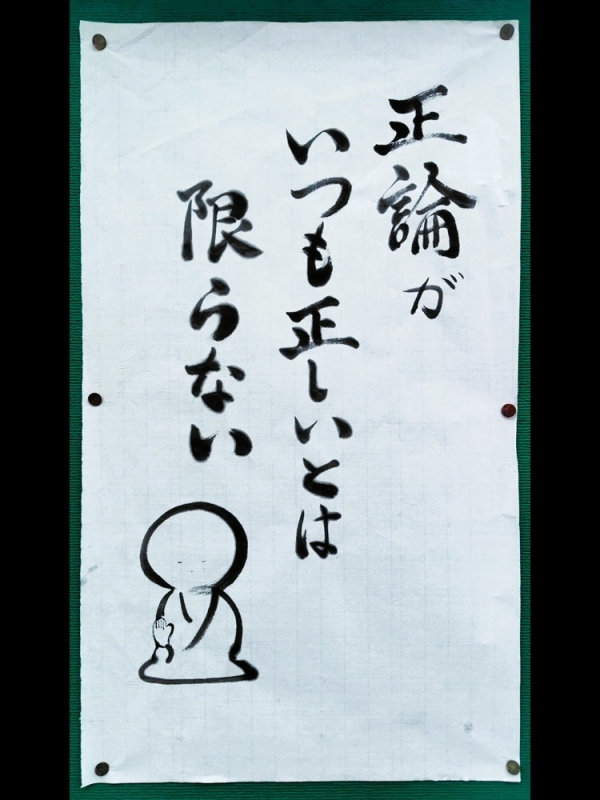 正論が
いつも正しいとは
限らない